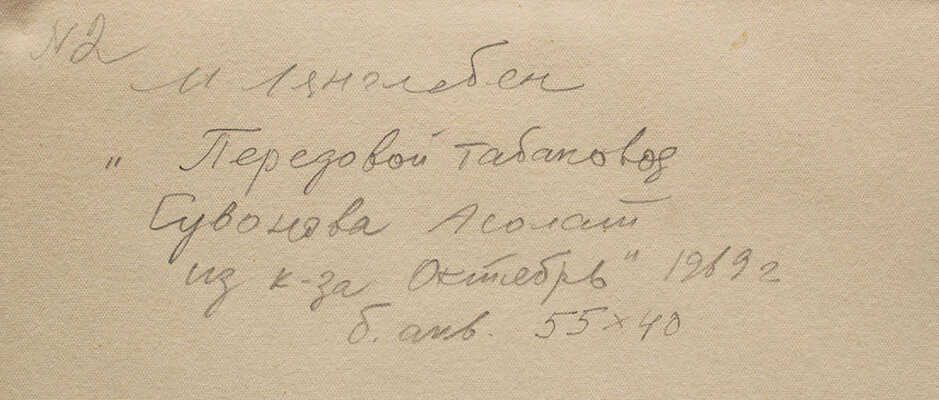 N2
М Лянглебен
" Передовой табаковод
Сувонова Асолат
из к-за Октябрь" 1969 г
б. акв. 55×40